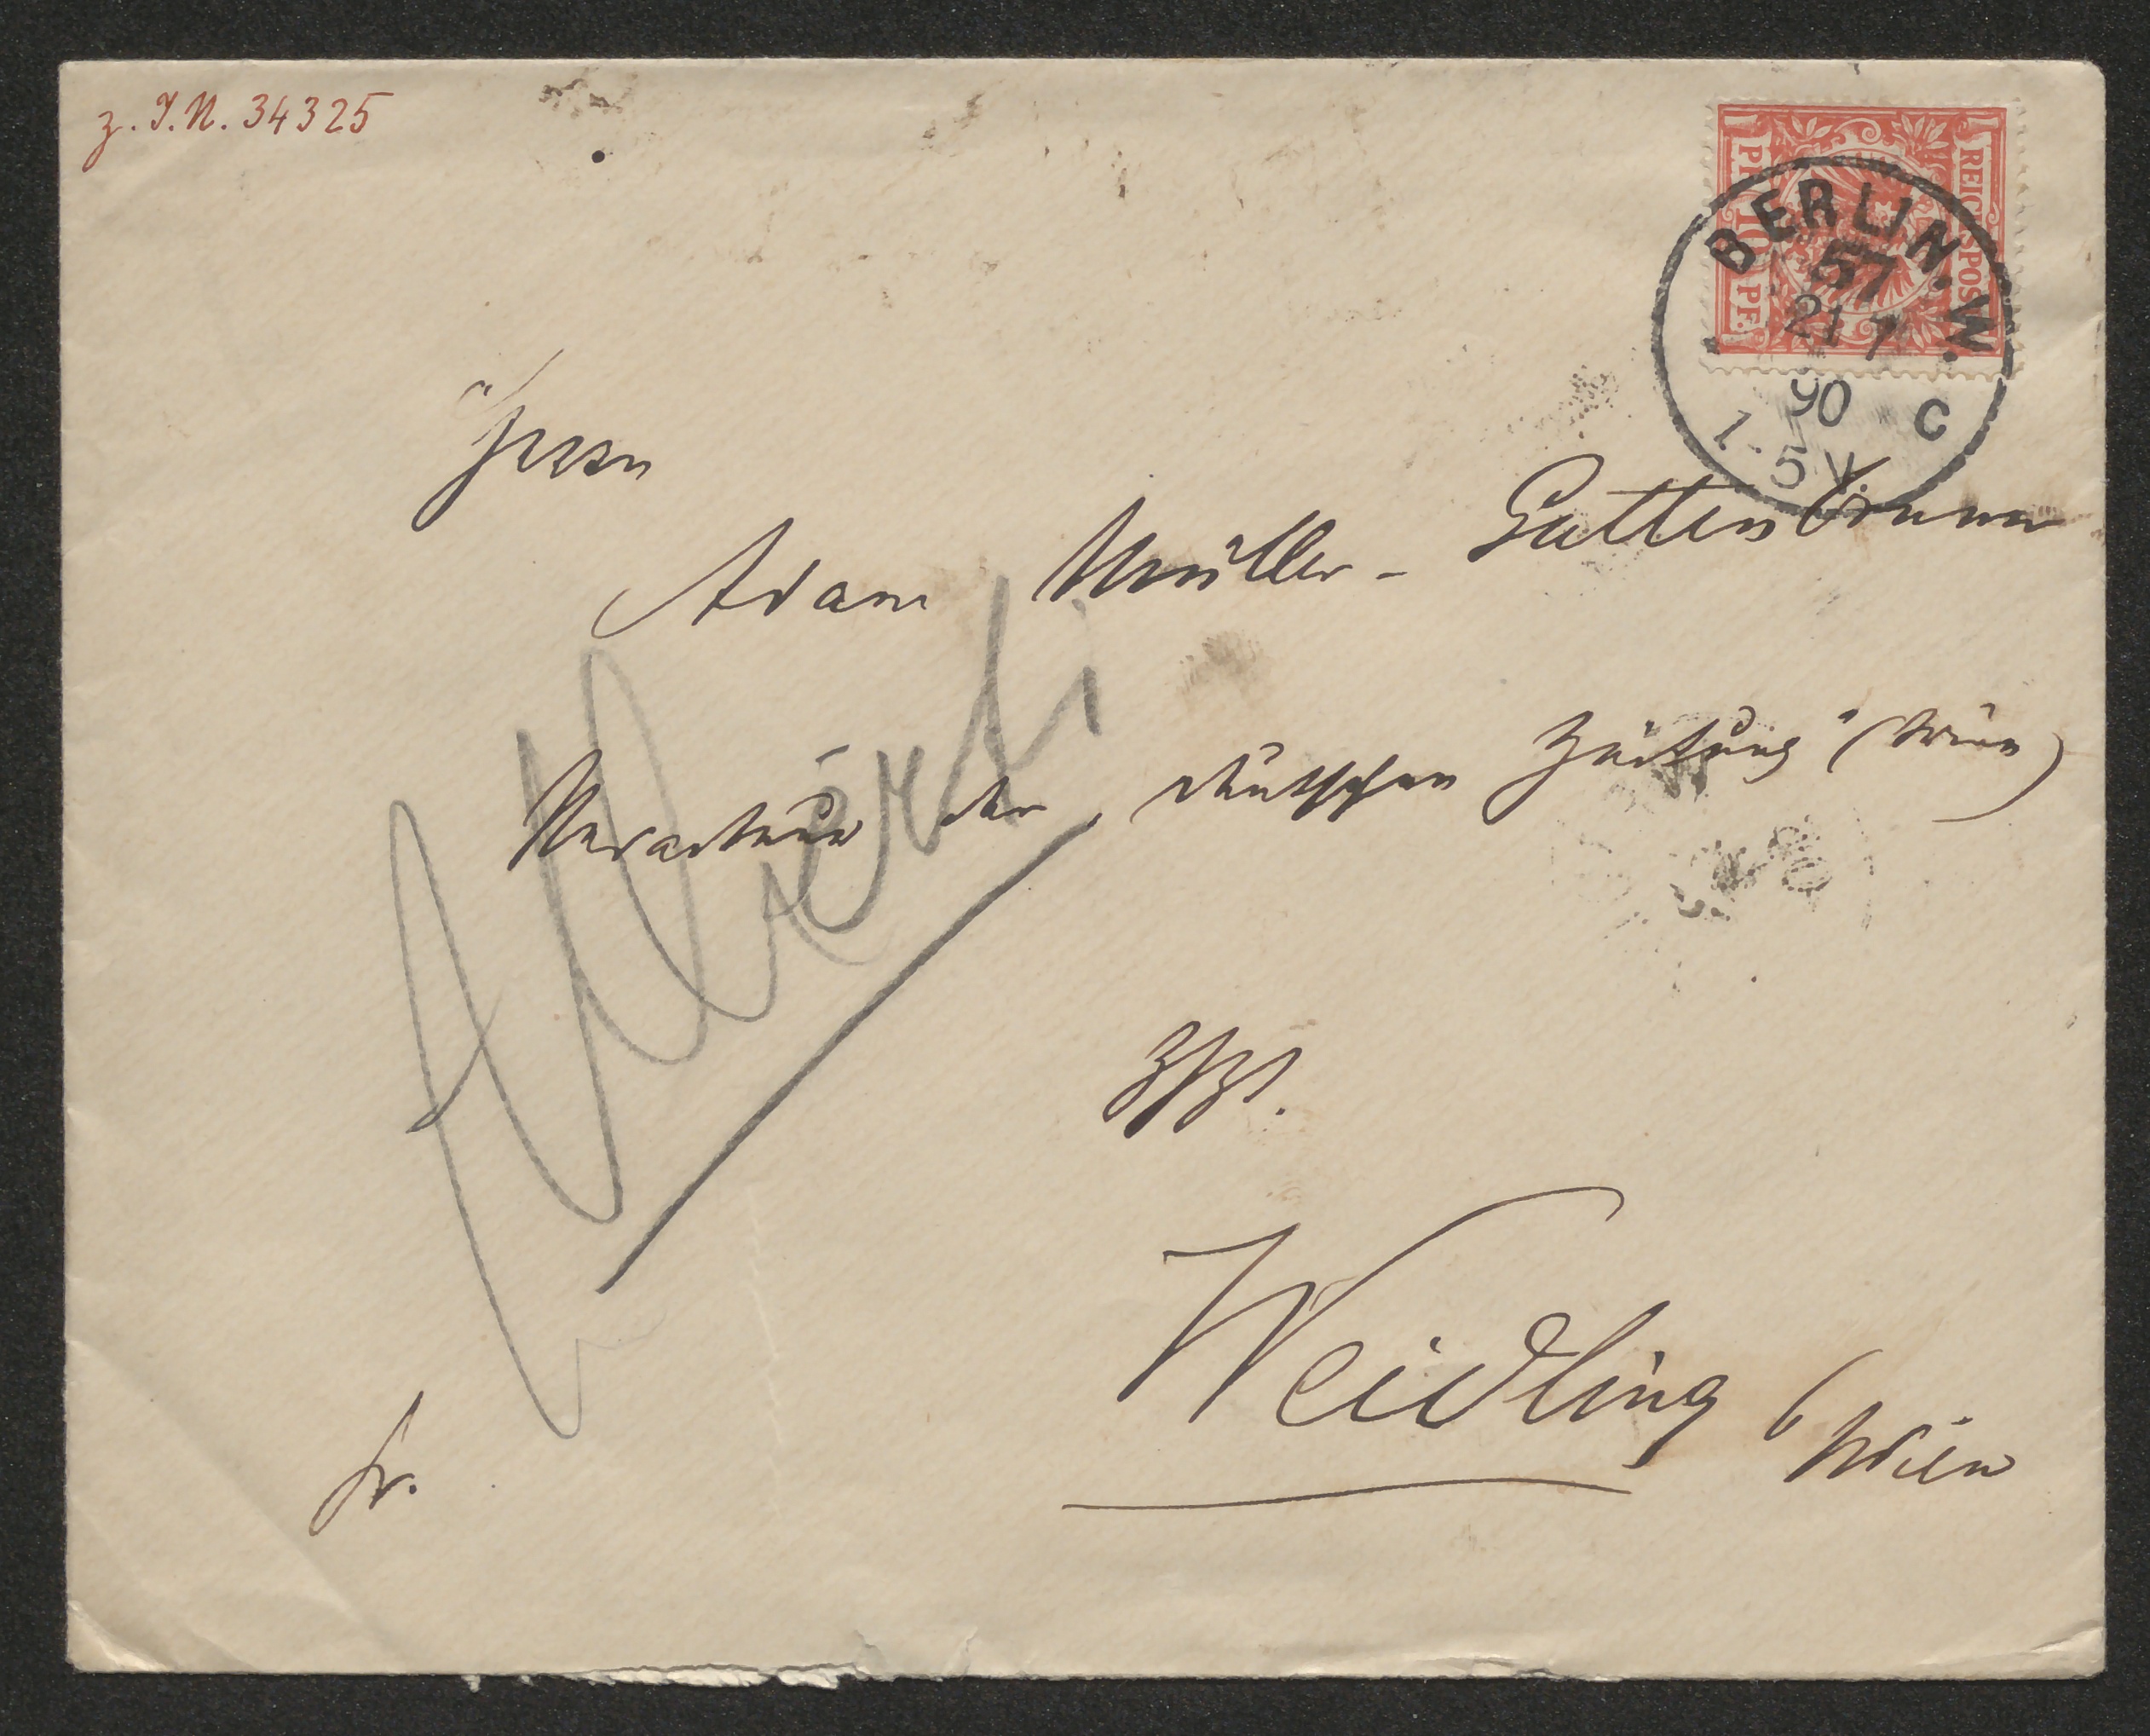 z. I.N. 34325
REICHSPOST
PF. 10 PF.
BERLIN. W.
57
21 7
90 C
1-5 V.
Herrn
Adam Müller-Guttenbrunn
Redacteur der „deutschen Zeitung" (Wien)
Zzt.
Weidling b/Wien
fr.